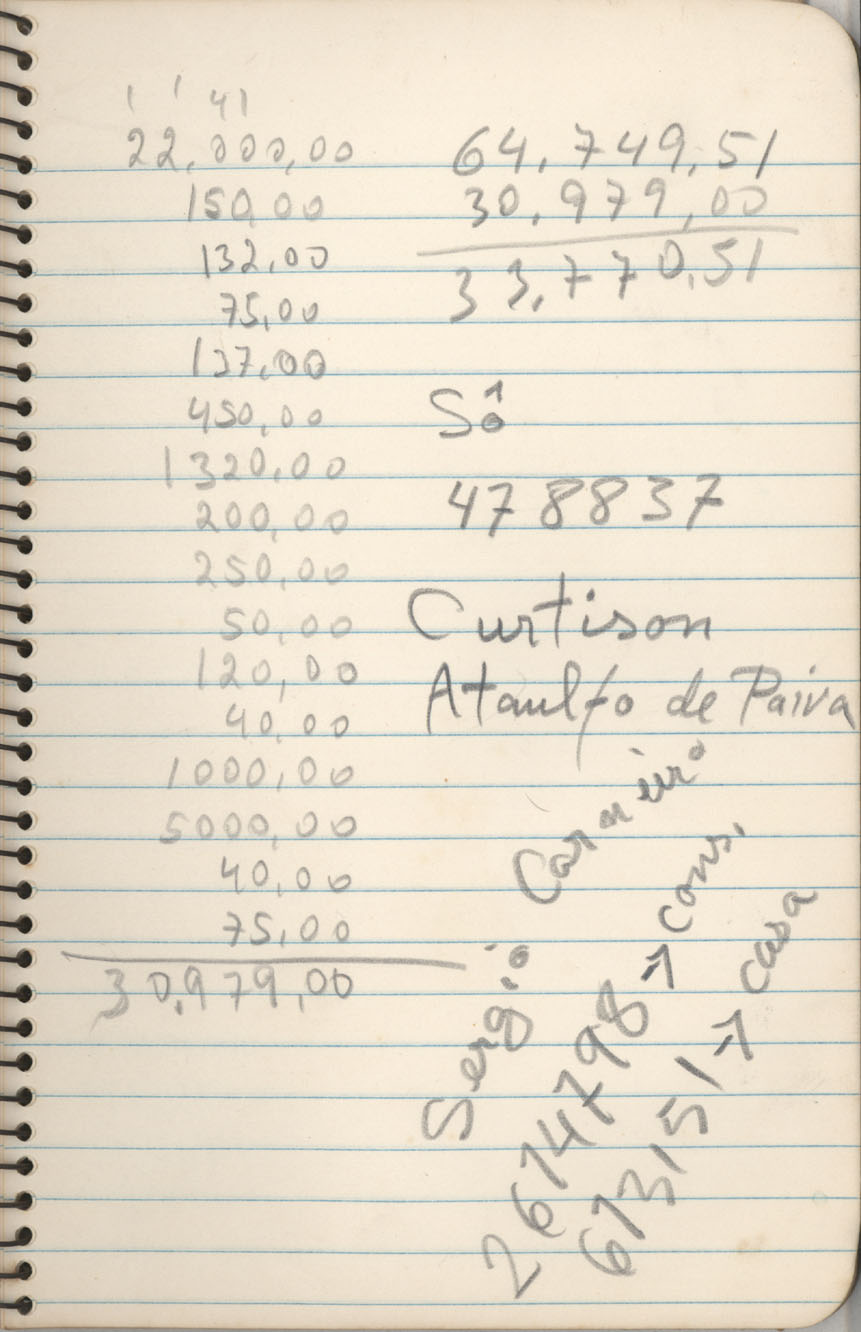 1 1 41
22.000,00
150,00
132,00
75,00
137,00
450,00
1320,00
200,00
250,00
50,00
120,00
40,00
1000,00
5000,00
40,00
75,00
30.979,00
64.749,51
30.979,00
33.770,51
Sô
478837
Curtison
Ataulfo de Paiva
Sergio Carneiro
2674798 → cons.
673151 → casa